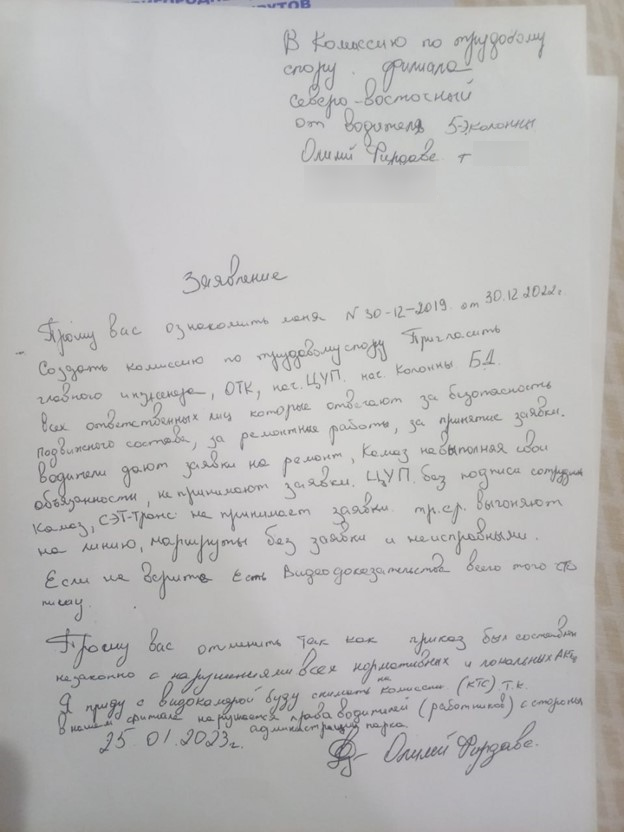 В Комиссию по трудовому
спору. филиала
Северо-восточный
от водителя 5-Э колонны
Олилй Фирдавс. т
Заявление
Прошу вас ознакомить меня N30-12-2019. от 30.12.2022г.
Создать комиссию по трудовому спору Пригласить
главного инженера, ОТК, нач. ЦУП. нач. Колонны БД.
всех ответственных лиц которые отвечают за безопасность
подвижного состава, за ремонтные работы, за принятие заявки.
водители дают заявки на ремонт, Камаз на выполная свои
объязанности, не принимают заявки. ЦУП. без подписа сотрудник
Камаз, СЭТ-Транс не принимает заявки. тр.ср. выгоняют
на линию, маршруты без заявки и неисправными.
Если не верите Есть Видео доказательства всего того что
писал.
Прошу вас отменить так как приказ был составлен
незаконно с нарушениями всех нормативных и локальных Акт
Я приду с видокамерой буду снимать на комиссии (КТС) т.к.
в нашем филиале нарушается права водителей (работников) с стороны
администраций парка.
25 01.2023г.
Олилй Фирдавс.